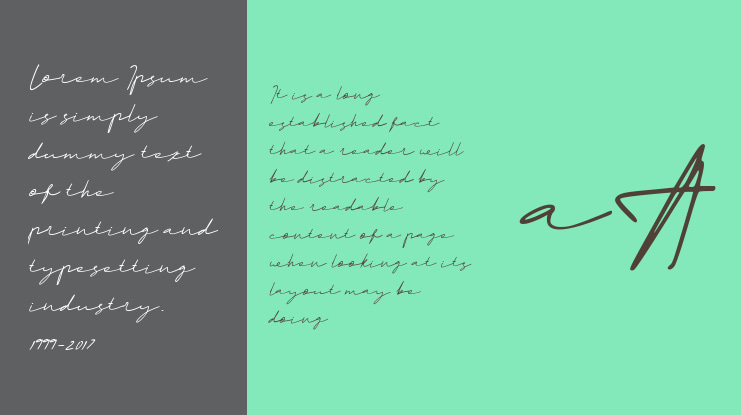 Lorem Ipsum
is simply
dummy text
of the
printing and
typesetting
industry.
1999-2017
It is a long
established fact
that a reader will
be distracted by
the readable
content of a page
when looking at its
layout may be
doing
a A